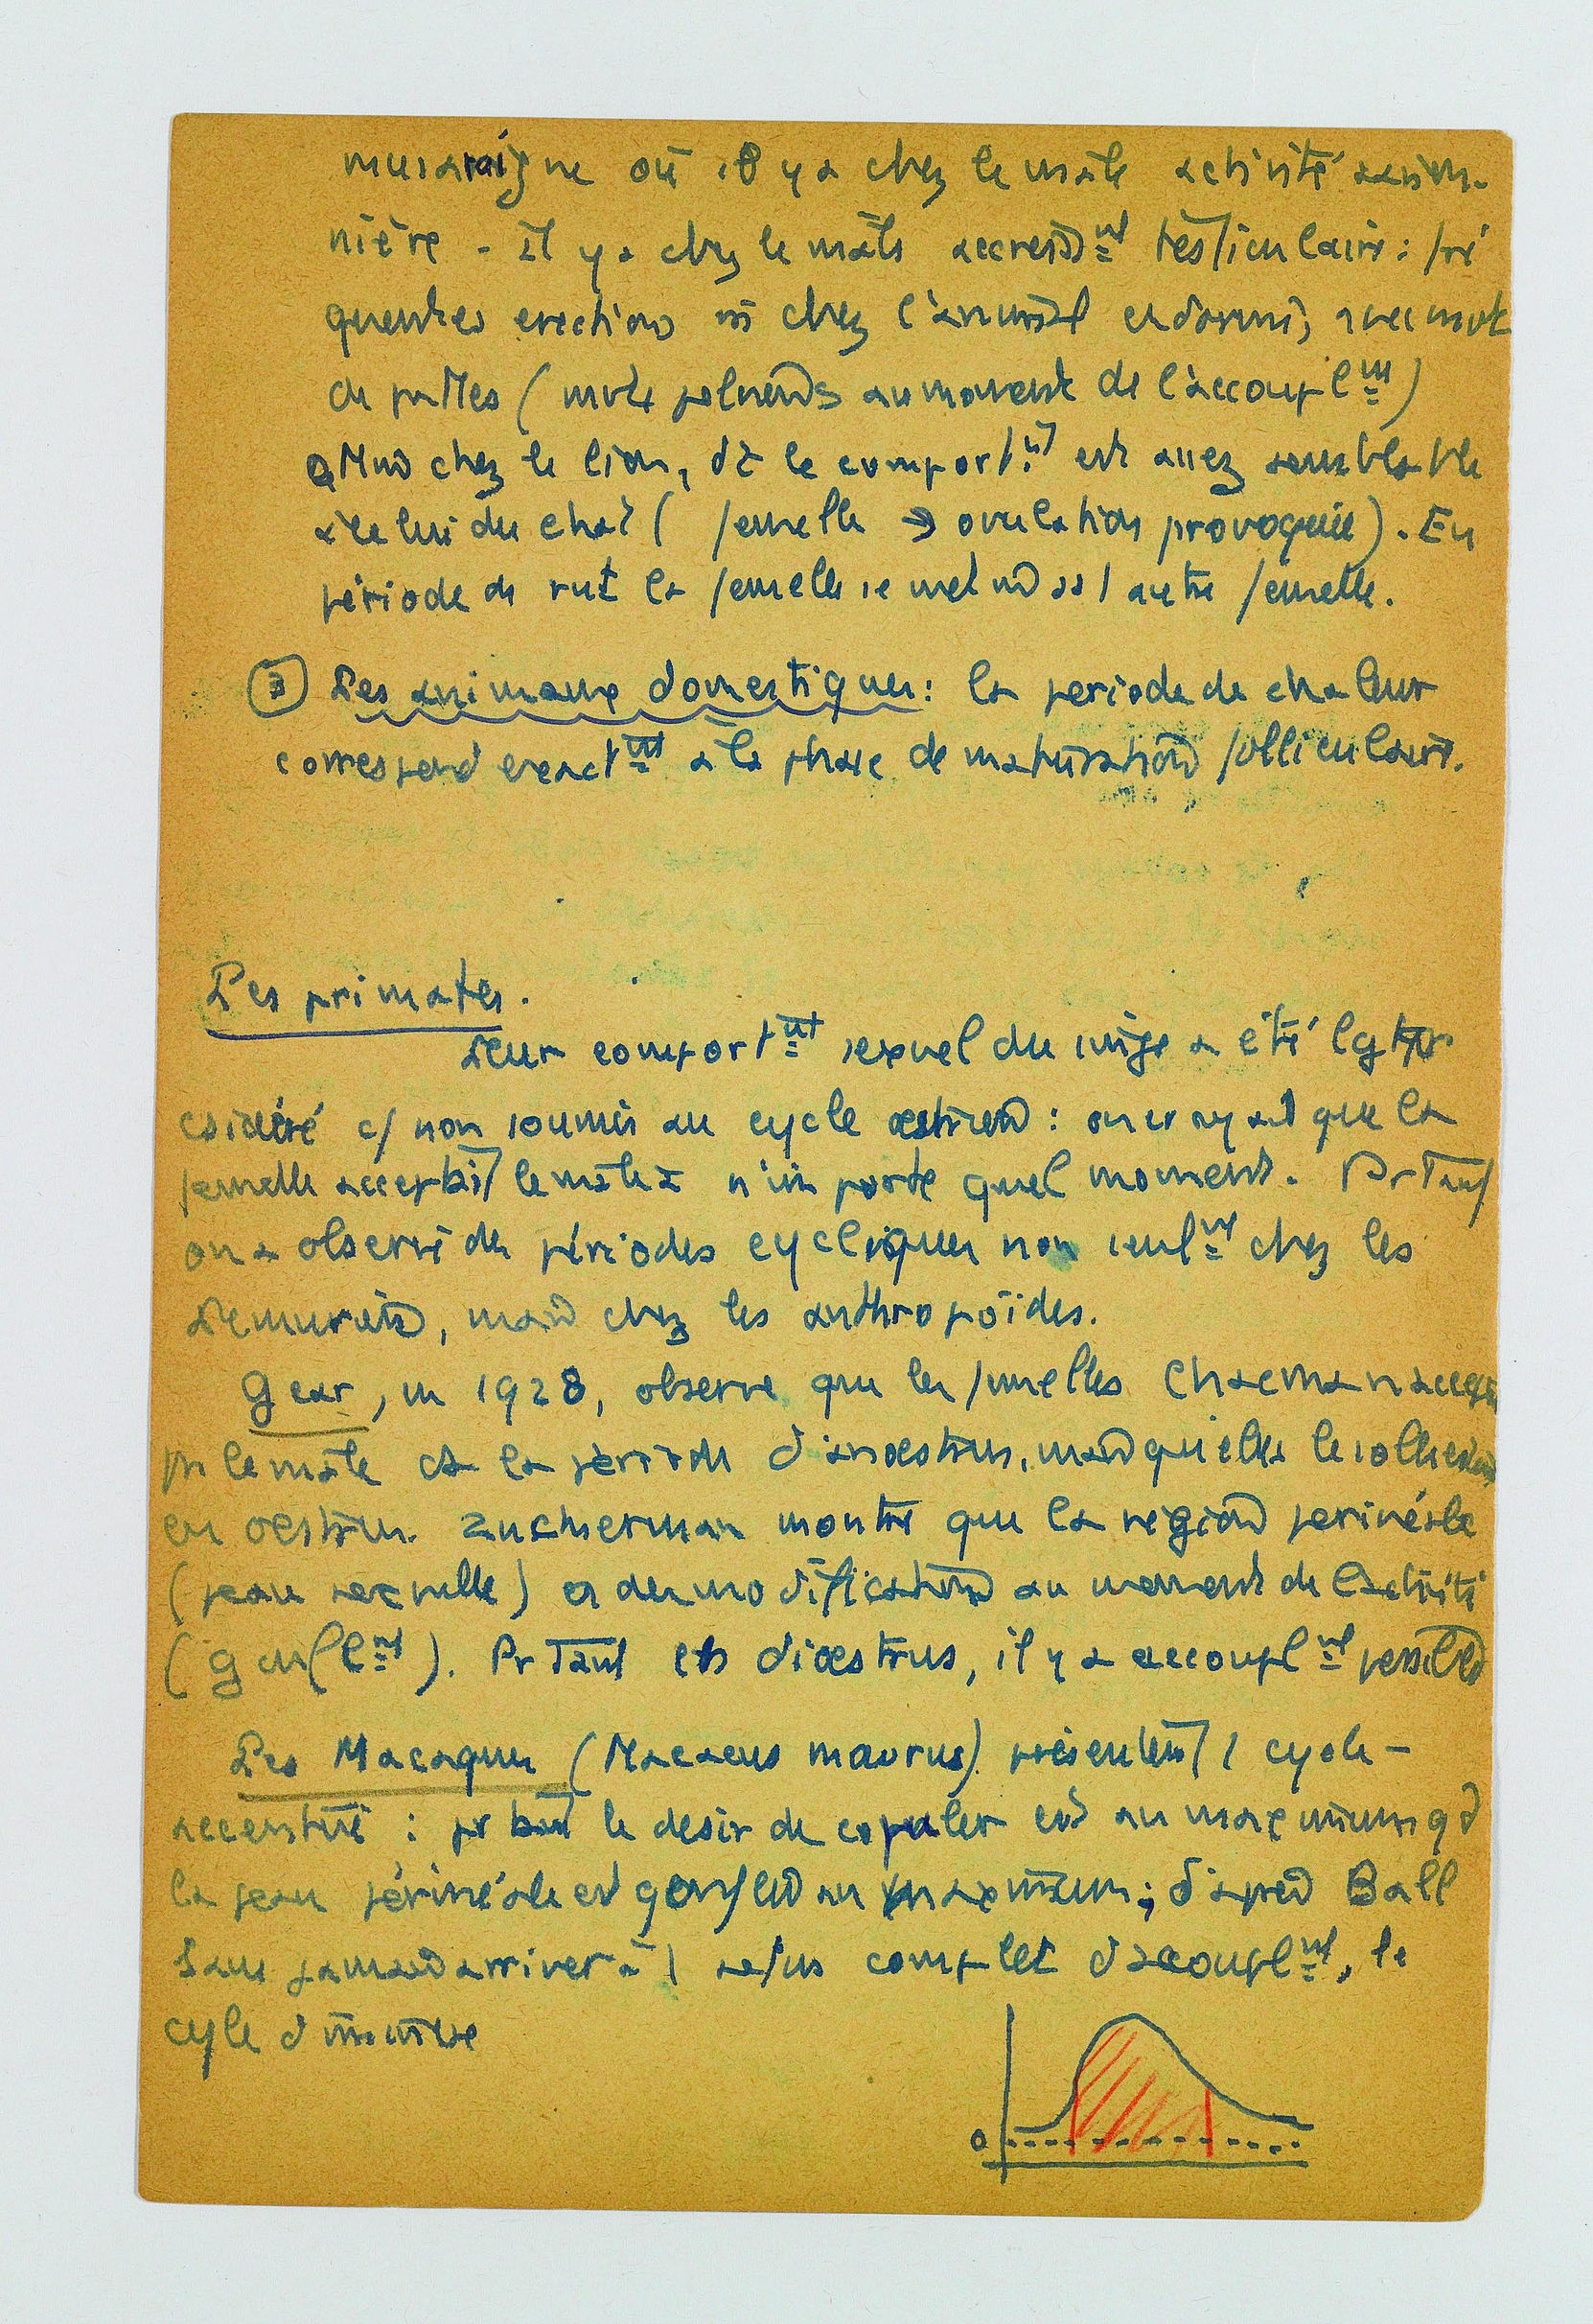 musaraigne où il y a chez le mâle activité saison-
nière - il y a chez le mâle accroiss^nt testiculaire : fré
quentes erections chez l'animal endormi, avec mvt
de pattes (mvts pelviens au moment de l'accoupl^nt)
chez le lion, où le comport^nt est assez semblable
à celui du chat ( femelle → ovulation provoquée). En
période de rut la femelle se met ss 1 autre femelle.
③ Les animaux domestiques : la periode de chaleur
correspond exact^nt à la phase de maturation folliculaire.
Les primates.
Leur comport^nt sexuel du singe a été lgtps
csidéré c/ non soumis au cycle oestrien : on croyait que la
femelle acceptait le mâle à n'importe quel moment. Prtant
on a observé des périodes cycliques non seul^nt chez les
Lemuriens, mais chez les anthropoïdes.
Gear, en 1928, observe que les femelles Chacma n'accep
pas le mâle ds la période d'anoestrus, mais qu'elles le sollicitent
en oestrus. Zuckerman montre que la région perinéale
(peau sexuelle) a des modifications au moment de l'activité
(gonfl^nt). Prtant en dioestrus, il y a accoupl^nt possible
Les Macaques (Macacus maurus) présentent 1 cycle
accentué : prtant le desir de copuler est au maximum qd
la peau périnéale est gonflée au maximum ; d'après Ball
sans jamais arriver à 1 refus complet d'accoupl^nt, le
cyle diminue
0